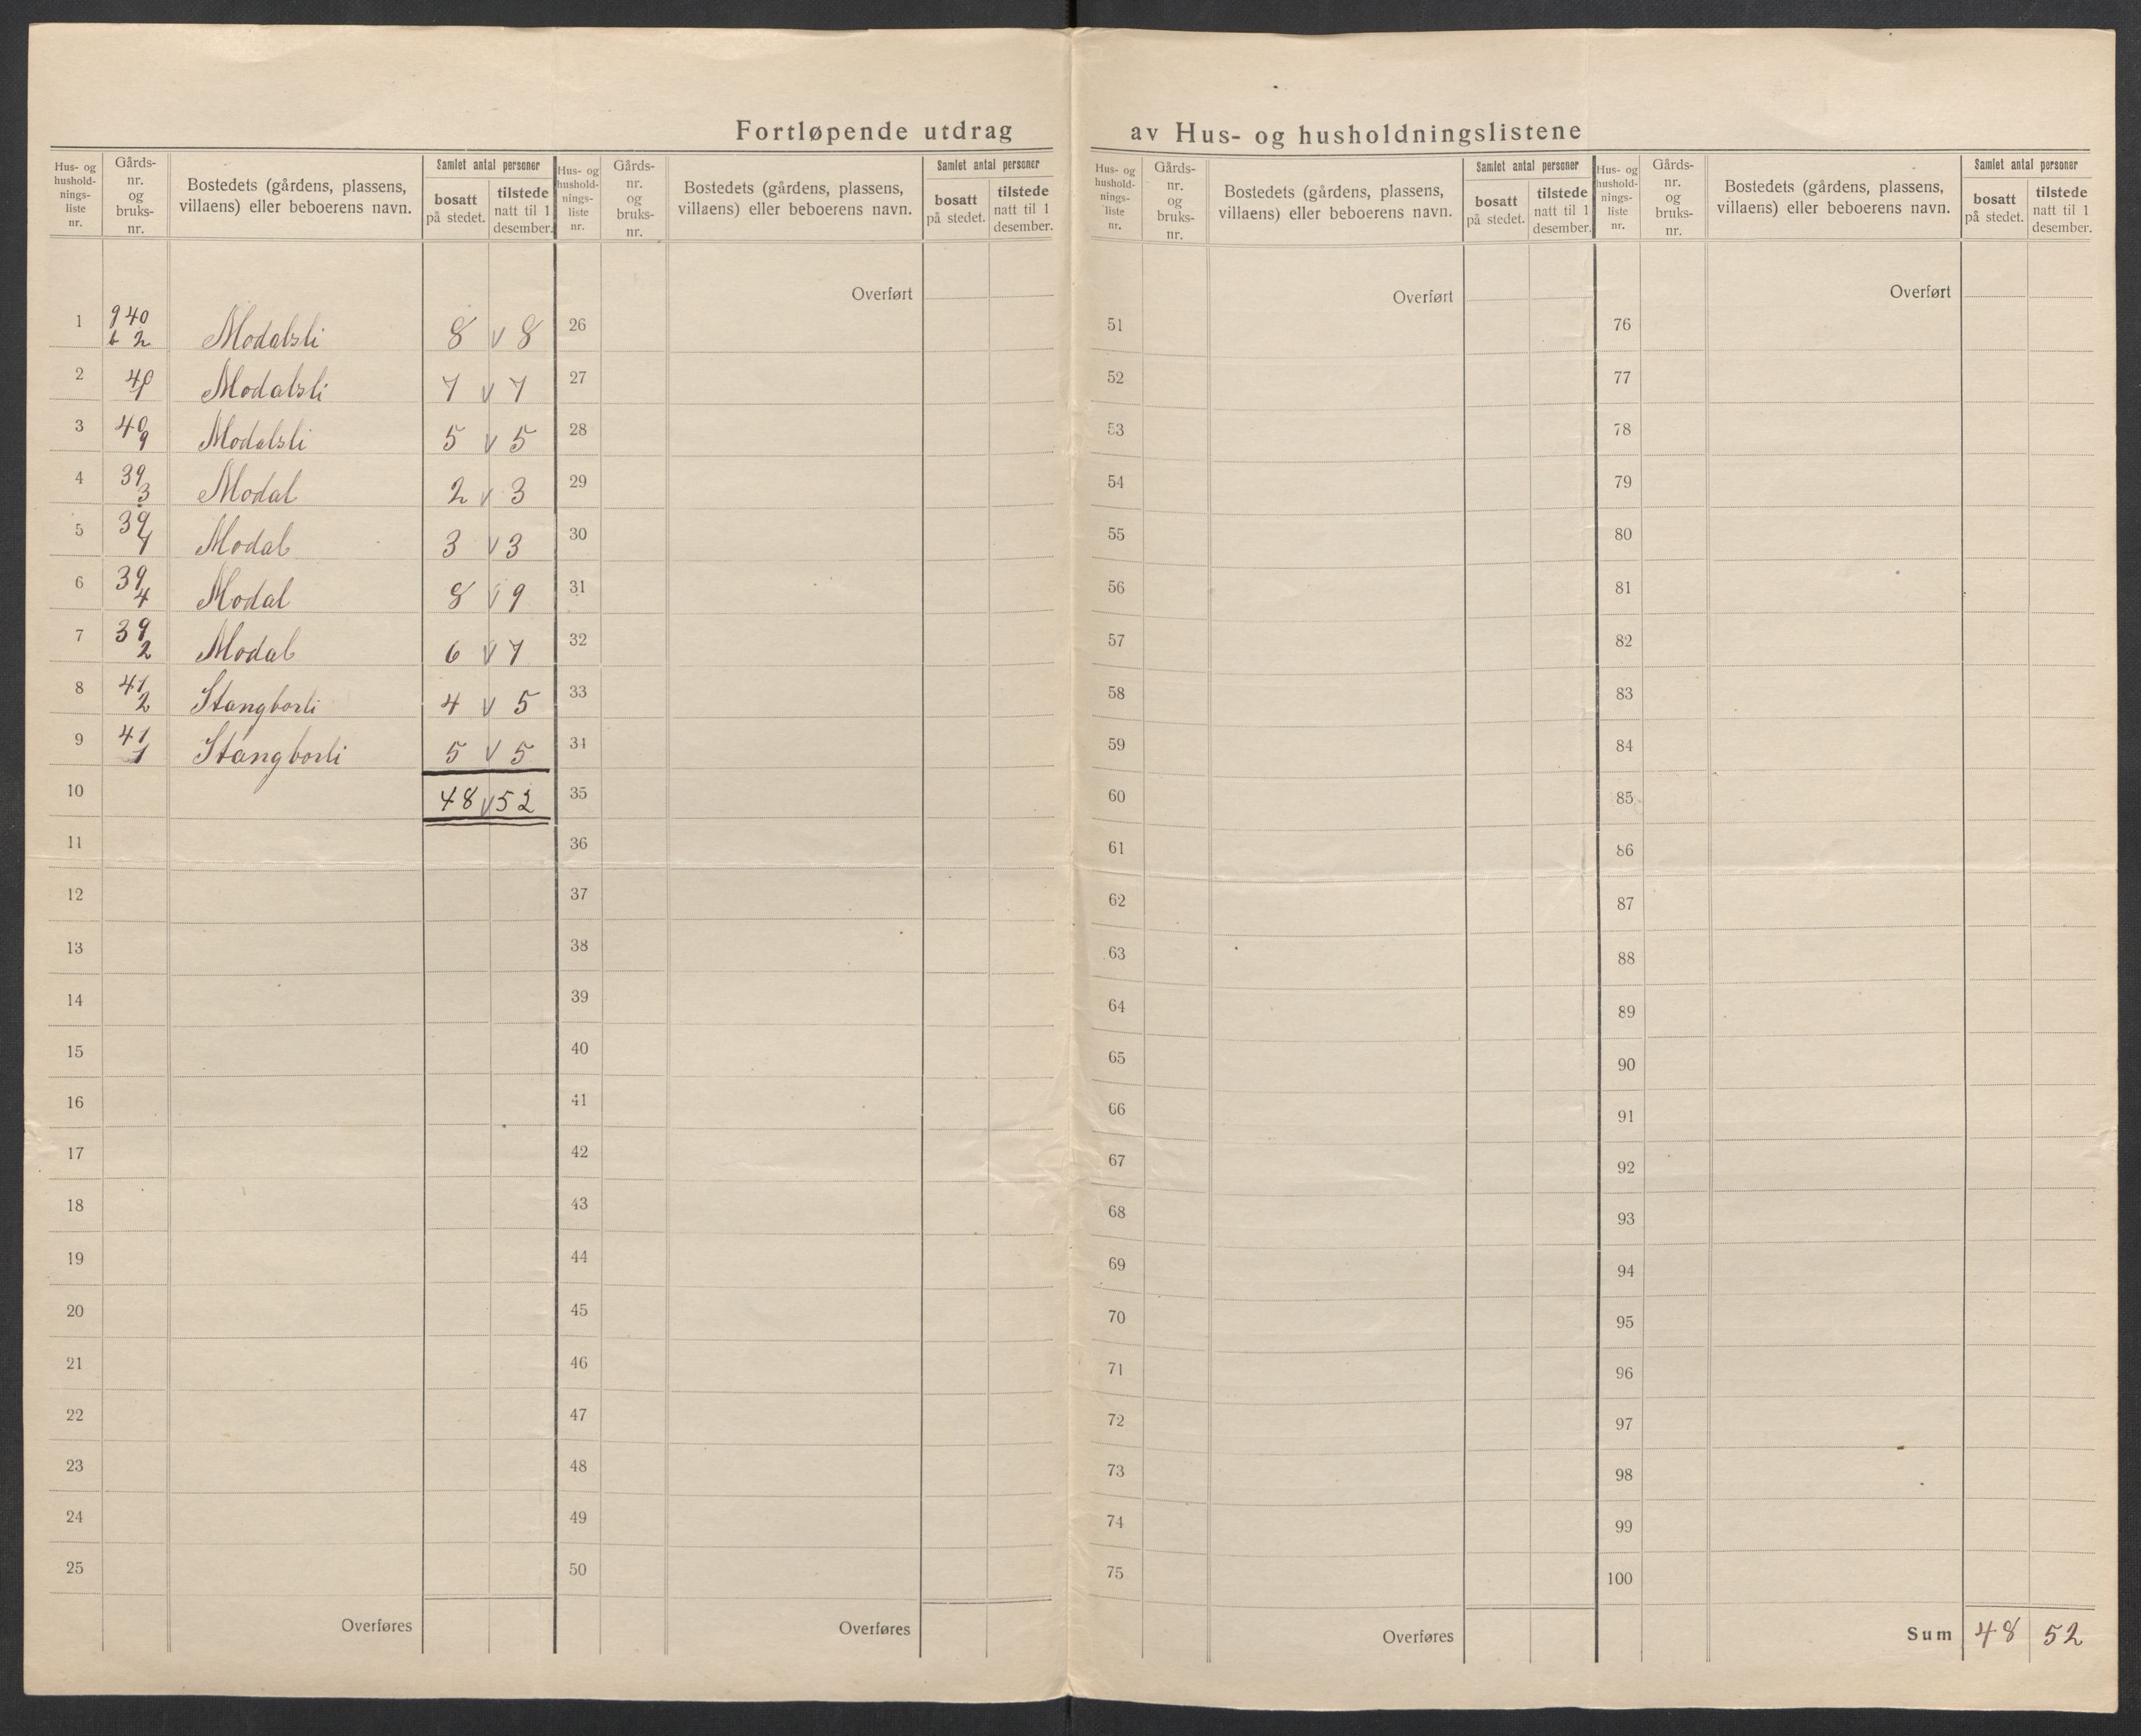 Fortløpende utdrag av Hus- og husholdningslistene
Hus- og hushold- nings- liste nr. | Gårds- nr. og bruks- nr. | Bostedets (gårdens, plassens, villaens) eller beboerens navn. | Samlet antal personer | bosatt på stedet. | tilstede natt til 1 desember.
Hus- og hushold- nings- liste nr. | Gårds- nr. og bruks- nr. | Bostedets (gårdens, plassens, villaens) eller beboerens navn. | Samlet antal personer | bosatt på stedet. | tilstede natt til 1 desember.
Hus- og hushold- nings- liste nr. | Gårds- nr. og bruks- nr. | Bostedets (gårdens, plassens, villaens) eller beboerens navn. | Samlet antal personer | bosatt på stedet. | tilstede natt til 1 desember.
Hus- og hushold- nings- liste nr. | Gårds- nr. og bruks- nr. | Bostedets (gårdens, plassens, villaens) eller beboerens navn. | Samlet antal personer | bosatt på stedet. | tilstede natt til 1 desember.
1 g 40 b 2 Modalsli 8 v 8
2 40 Modalsli 7 v 7
3 40 9 Modalsli 5 v 5
4 39 3 Modal 2 v 3
5 39 1 Modal 3 v 3
6 39 4 Modal 8 v 9
7 39 2 Modal 6 v 7
8 41 2 Stangborli 4 v 5
9 41 1 Stangborli 5 v 5
10 48 v 52
11
12
13
14
15
16
17
18
19
20
21
22
23
24
25
Overføres
Overført
26
27
28
29
30
31
32
33
34
35
36
37
38
39
40
41
42
43
44
45
46
47
48
49
50
Overføres
Overført
51
52
53
54
55
56
57
58
59
60
61
62
63
64
65
66
67
68
69
70
71
72
73
74
75
Overføres
Overført
76
77
78
79
80
81
82
83
84
85
86
87
88
89
90
91
92
93
94
95
96
97
98
99
100
Sum 48 52